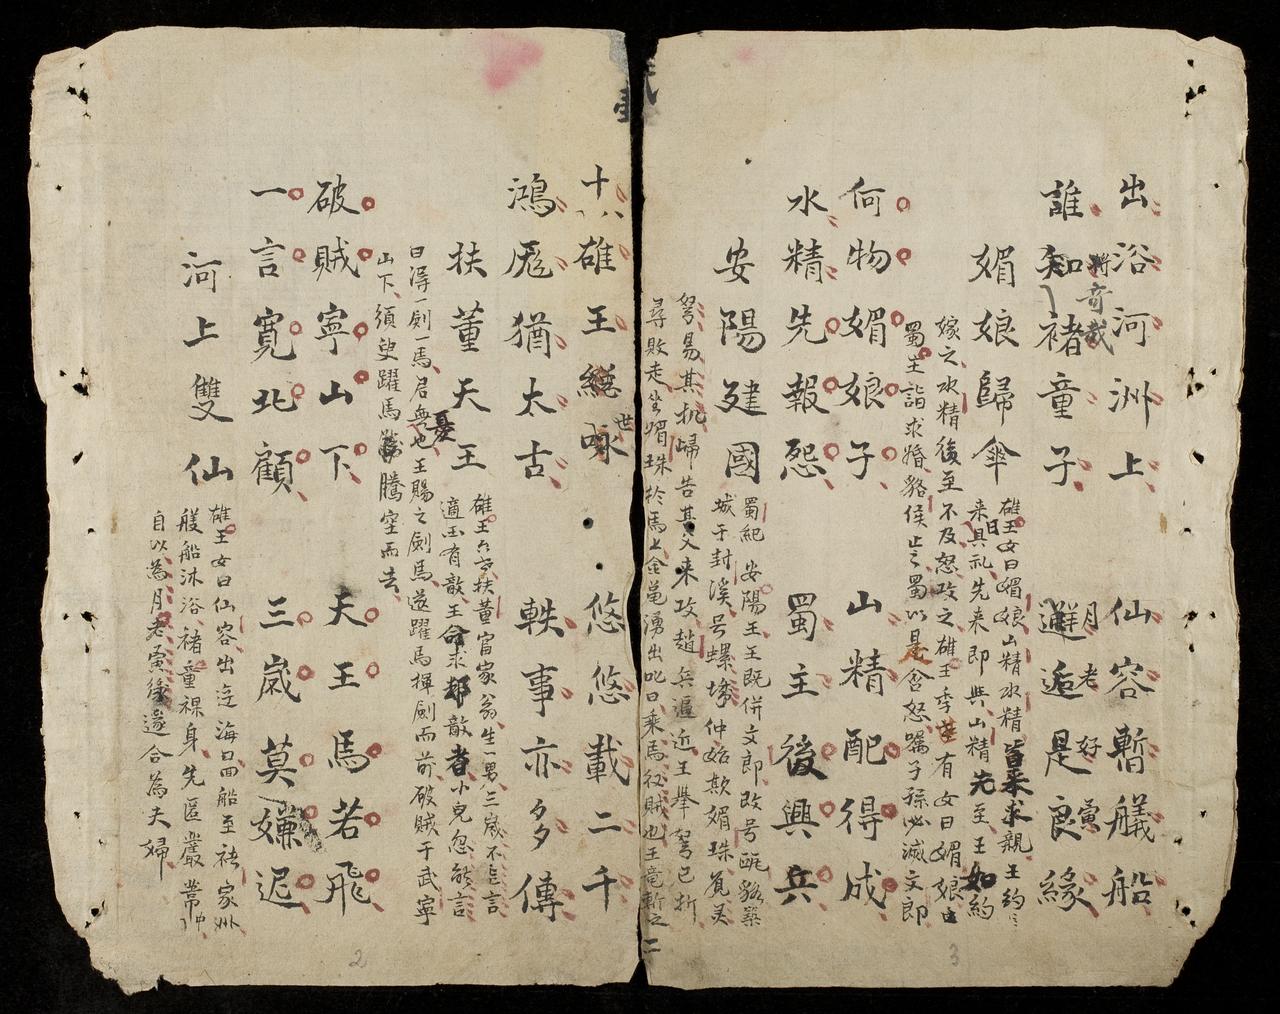 十八雄王世咏 悠悠載二千
鴻厖猶太古 軼事亦多傳
扶董天王
雄王六世扶董富家翁生一男三歲不言言
適王有敵王命求却敵者小兒忽能言
曰得一劍一馬君無憂也王賜之劍馬遂躍馬揮劍而前破賊于武寧
山下須臾躍馬騰空而去
破賊寧山下 天王馬若飛
一言寬北顧 三歲莫嫌遲
河上雙仙
雄王女曰仙容出遊海口回船至褚家洲
艤船沐浴褚童裸身先匿叢葦中
自以為月老寅緣遂合為夫婦
2
出浴河洲上 仙容暫艤船
將奇哉 月老好寅
誰知褚童子 邂逅是良緣
媚娘歸傘
雄王女曰媚娘山精水精皆來求親王約曰
来日具礼先来即與山精先至王如約
嫁之水精後至不及怒攻之雄王季世有女曰媚娘
蜀王詣求婚貉侯止之蜀以是含怒囑子孫必滅文郎
何物媚娘子 山精配得成
水精先報怨 蜀主後興兵
安陽建國
蜀紀安陽王王既併文郎改号甌貉築
城于封溪号螺城仲始欺媚珠覓灵
弩易其机歸告其父来攻趙兵逼近王舉弩已折
尋敗走坐媚珠於馬上金亀湧出叱曰乘馬後賊也王斬之
二
3